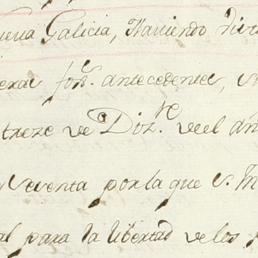 Nueva Galicia, Haviendo
antecedentes,
trese de Diz.re del añ
y Cuenta por la que S. M
al para la libertad de los